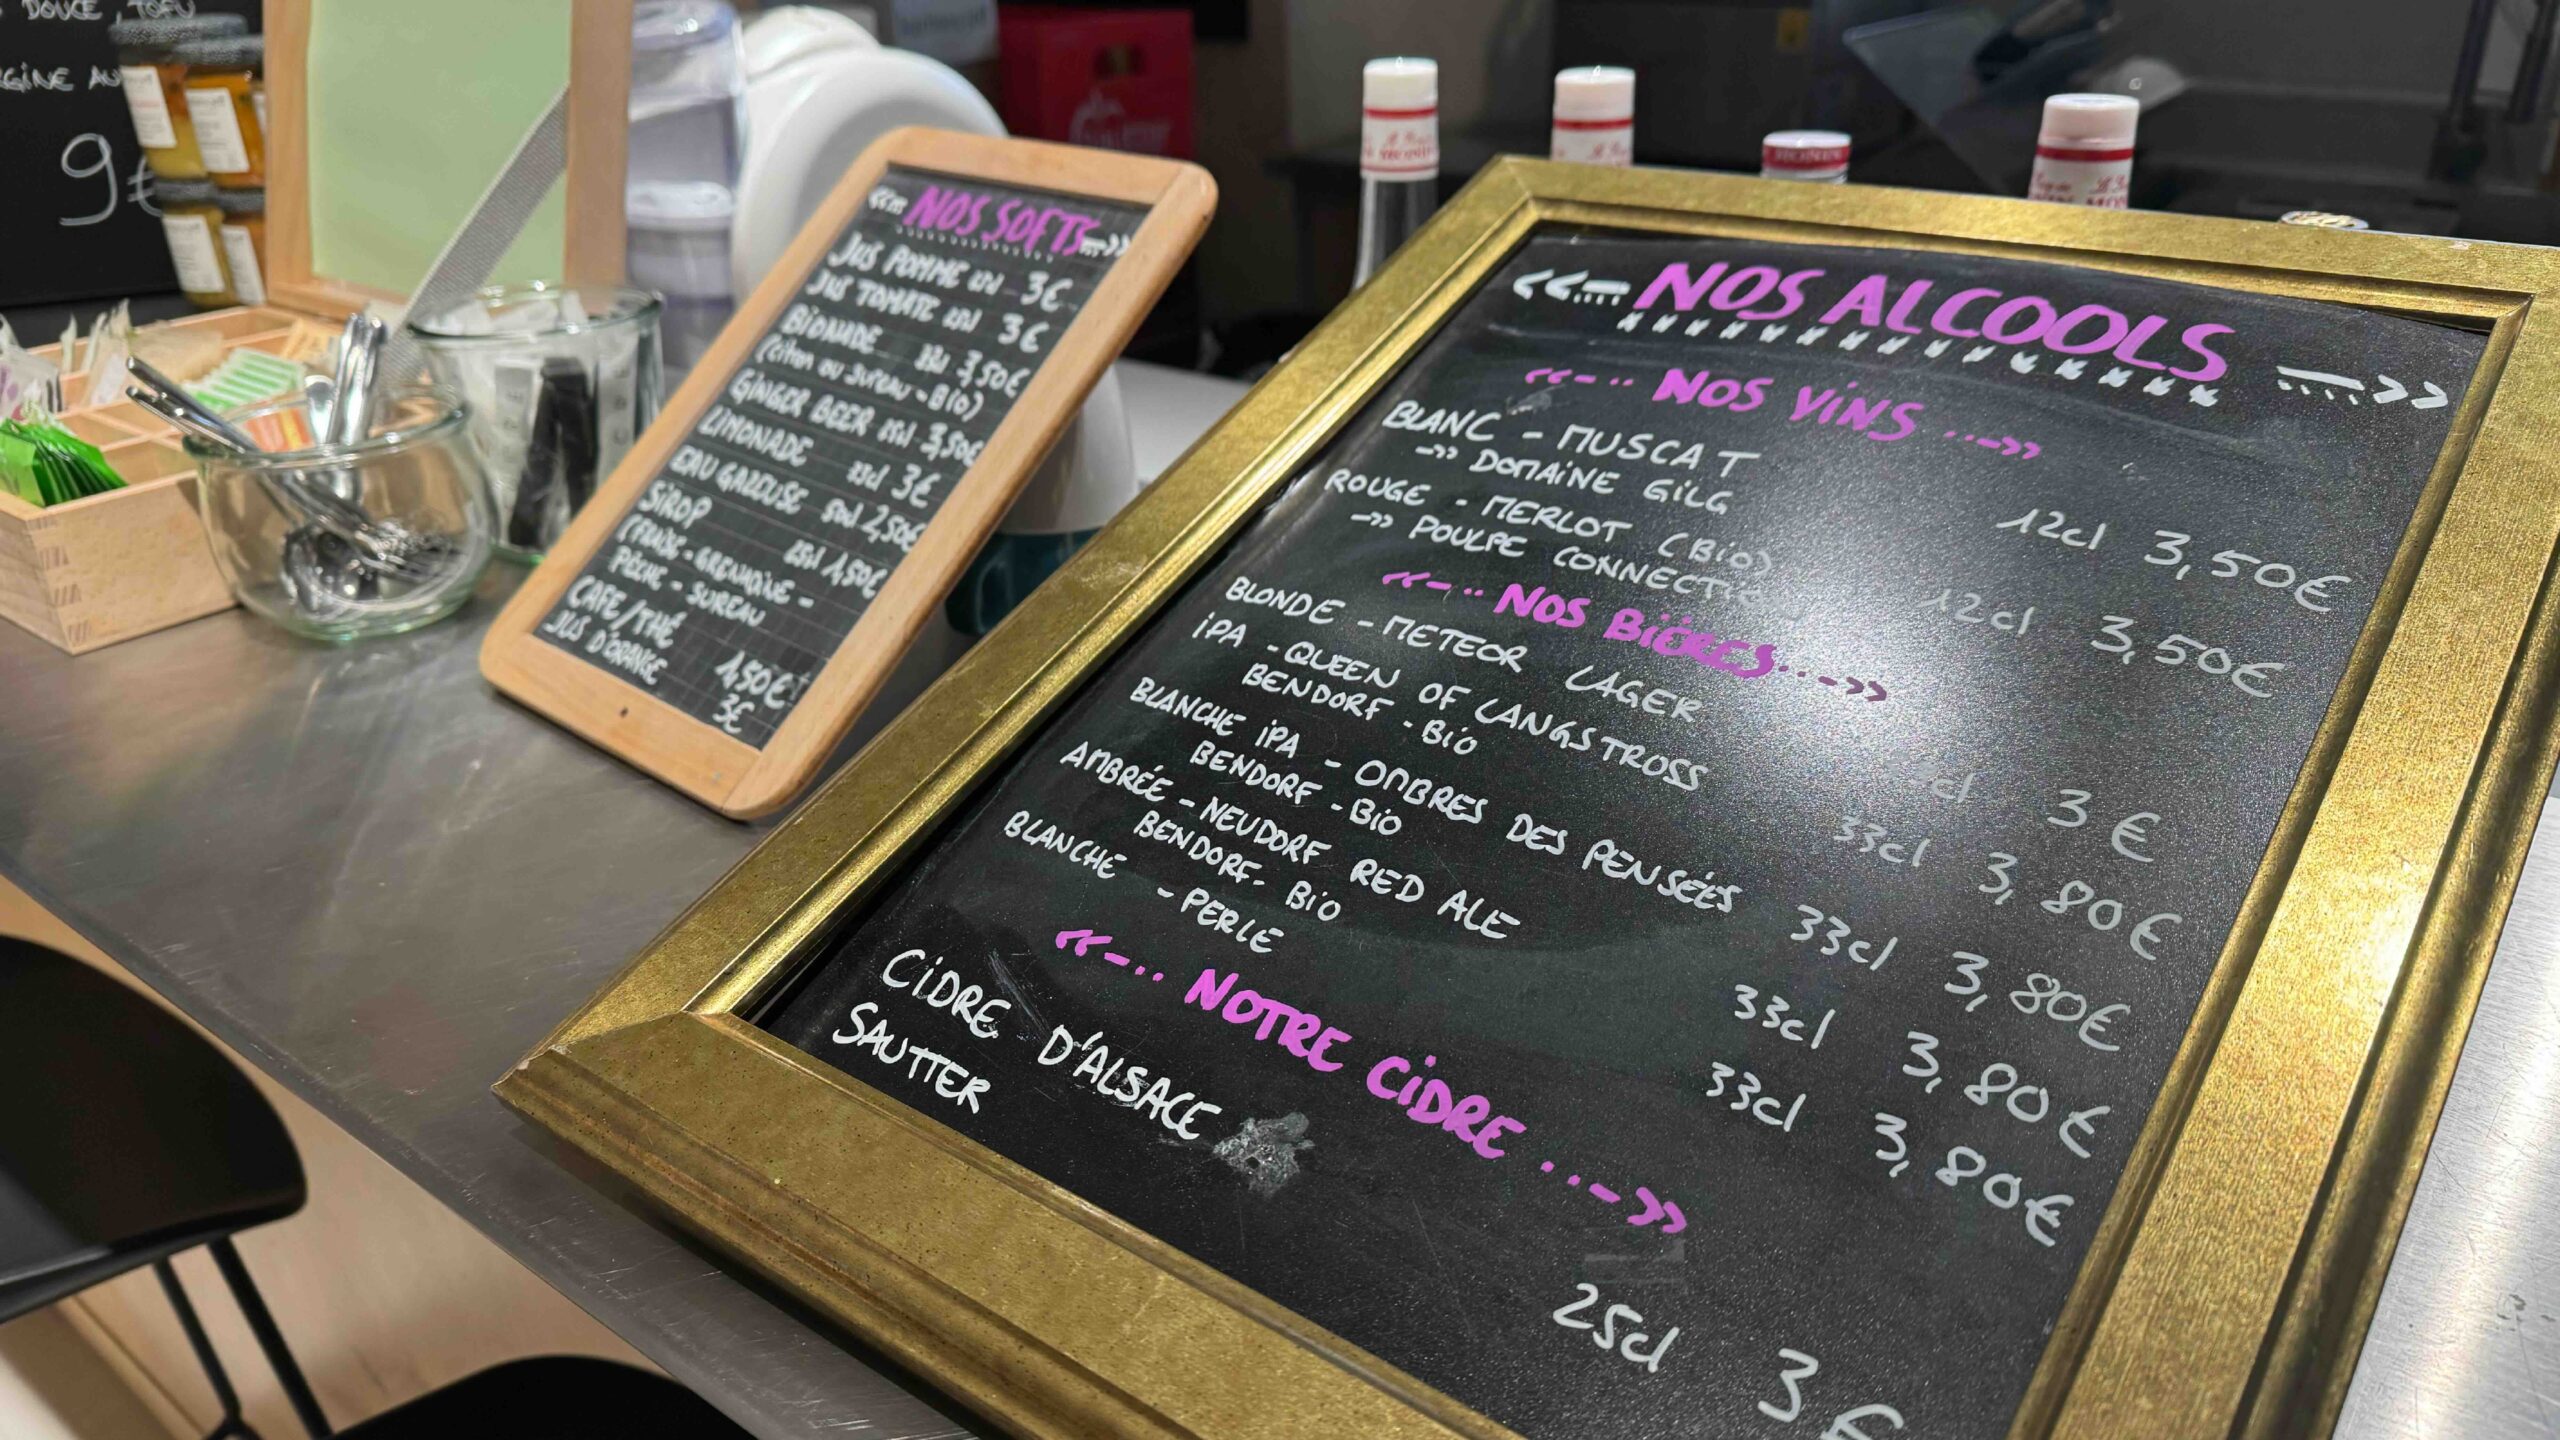 DOUCE, TOFU
9€
<<-- NOS SOFTS -->>
JUS POMME 3€
JUS TOMATE 3€
BIONADE 3,50€
(citron ou sureau - BIO)
GINGER BEER 3,50€
LIMONADE 3€
EAU GAZEUSE 2,50€
SIROP 1,50€
(FRAISE - GRENADINE -
PÊCHE - SUREAU
CAFE/THÉ 1,50€
JUS D'ORANGE 3€
MONIN
<<-- NOS ALCOOLS -->>
<<-·· NOS VINS ··->>
BLANC - MUSCAT 12cl 3,50€
->> DOMAINE GILG
ROUGE - MERLOT (BIO) 12cl 3,50€
->> POULPE
<<-·· NOS BIÈRES ··->>
BLONDE - METEOR LAGER cl 3€
IPA - QUEEN OF LANGSTROSS 33cl 3,80€
BENDORF - BIO
BLANCHE IPA - OMBRES DES PENSÉES 33cl 3,80€
BENDORF - BIO
AMBRÉE - NEUDORF RED ALE 33cl 3,80€
BENDORF - BIO
BLANCHE - PERLE 33cl 3,80€
<<-·· NOTRE CIDRE ··->>
CIDRE D'ALSACE 25cl 3€
SAUTTER